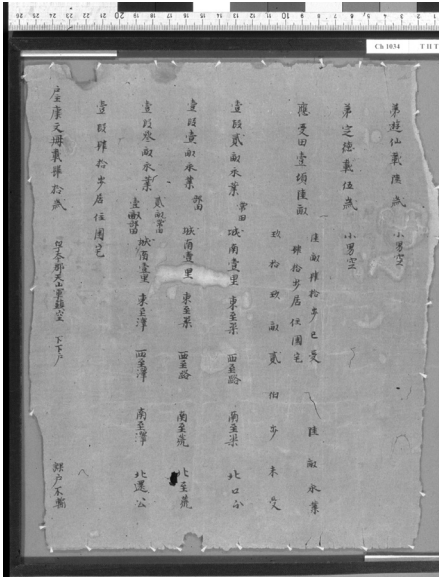 Ch 1034 T II T
弟遊仙載陸歲 小男空
弟定德載伍歲 小男空
應受田壹頃陸畝 陸畝肆拾步已受 陸畝永業
肆拾步居住園宅 玖拾玖畝貳佰步未受
壹段貳畝永業 常田 城南壹里 東至渠 西至路 南至渠 北
壹段壹畝永業 部田 城南壹里 東至渠 西至路 南至荒 北至荒
壹段叁畝永業 貳畝常田 壹畝部田 城南壹里 東至澤 西至澤 南至澤 北還公
壹段肆拾步居住園宅
載 拾歲 天山軍鎮空 下下戶 戶不輸